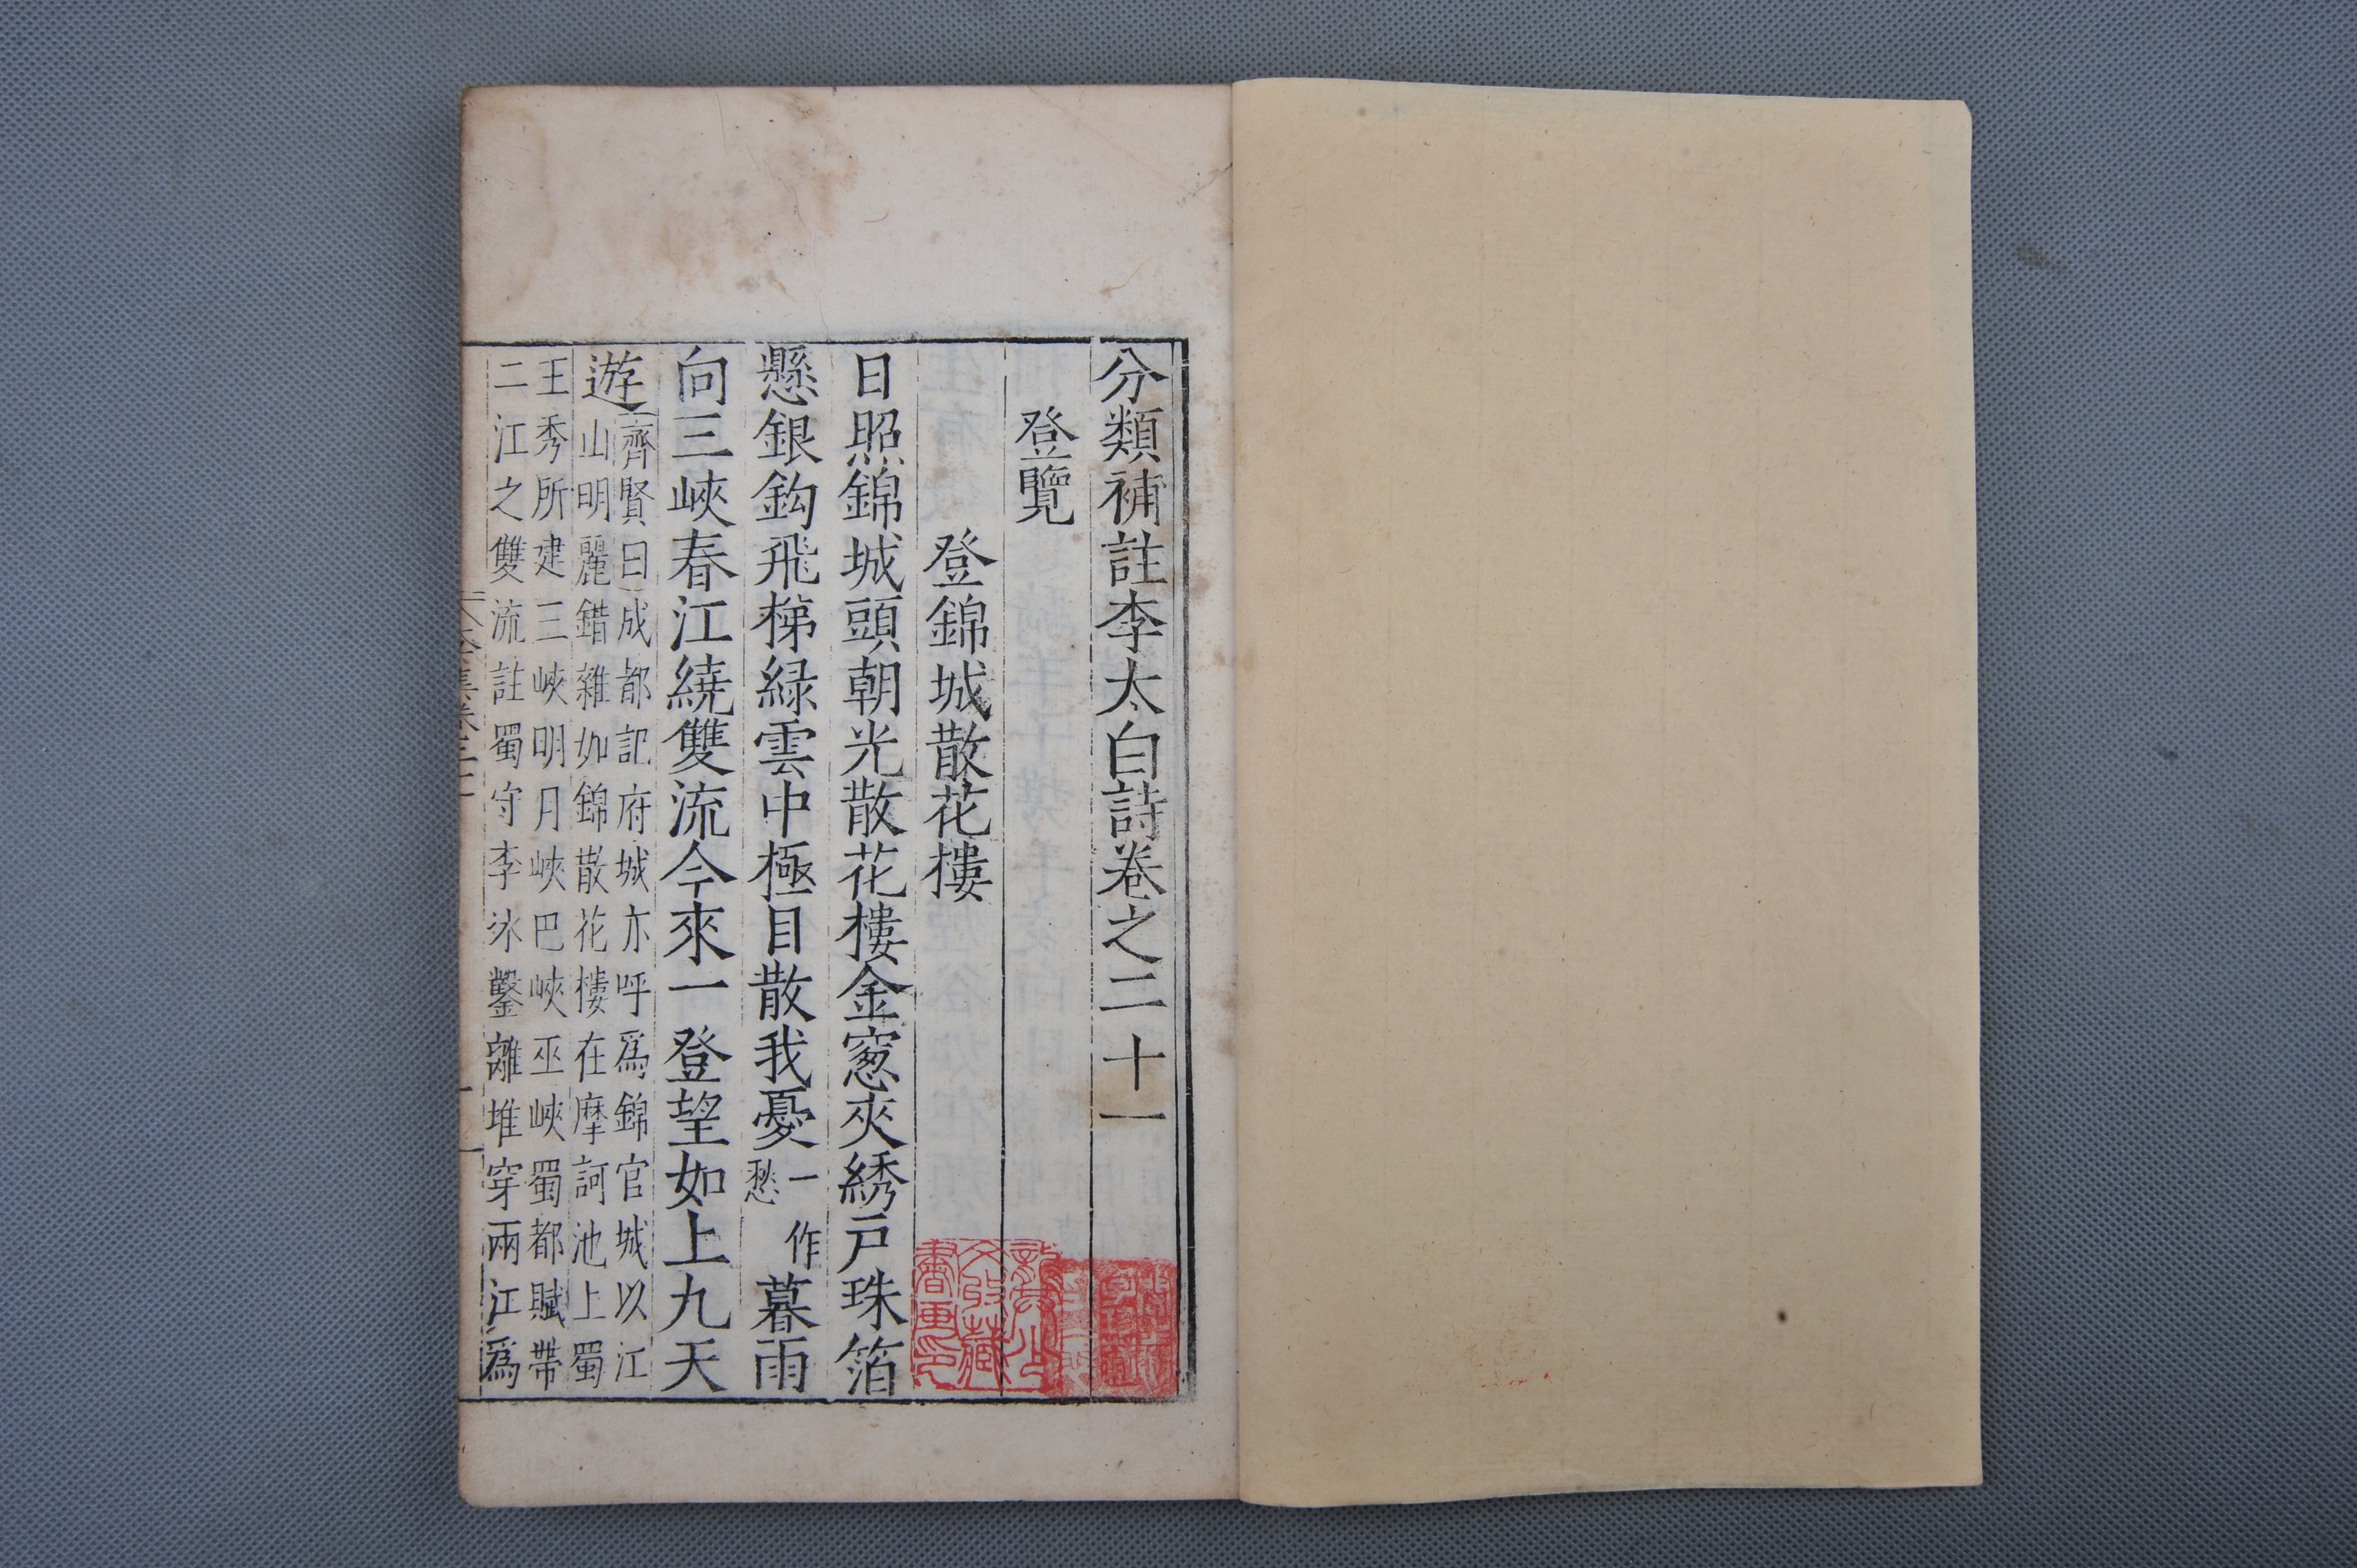 分類補註李太白詩卷之二十一
登覽
登錦城散花樓
日照錦城頭朝光散花樓金窻夾綉戸珠箔
懸銀鈎飛梯緑雲中極目散我憂一作愁暮雨
向三峽春江繞雙流今來一登望如上九天
遊齊賢曰成都記府城亦呼爲錦官城以江
山明麗錯雜如錦散花樓在摩訶池上蜀
王秀所建三峽明月峽巴峽巫峽蜀都賦帶
二江之雙流註蜀守李冰鑿離堆穿兩江爲